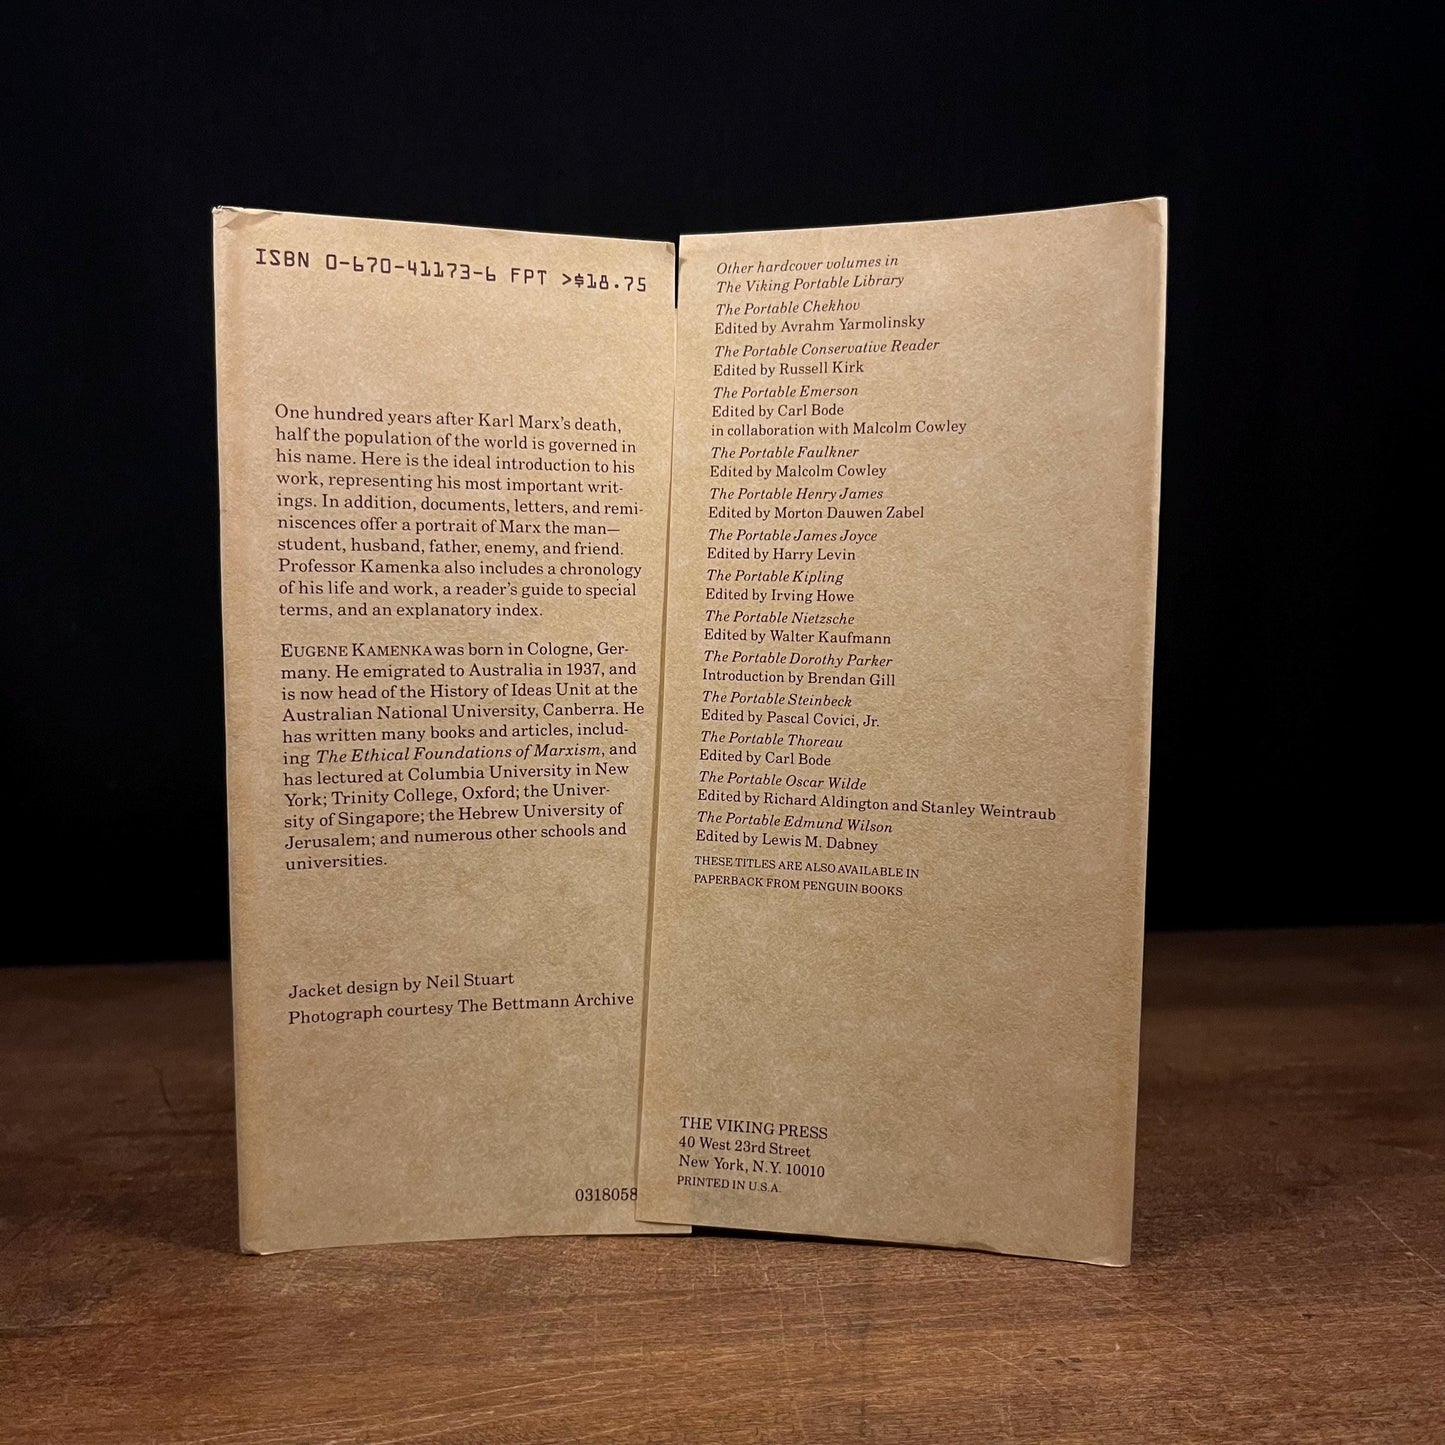 ISBN 0-670-41173-6 FPT >$18.75
One hundred years after Karl Marx's death,
half the population of the world is governed in
his name. Here is the ideal introduction to his
work, representing his most important writ-
ings. In addition, documents, letters, and remi-
niscences offer a portrait of Marx the man—
student, husband, father, enemy, and friend.
Professor Kamenka also includes a chronology
of his life and work, a reader's guide to special
terms, and an explanatory index.
EUGENE KAMENKA was born in Cologne, Ger-
many. He emigrated to Australia in 1937, and
is now head of the History of Ideas Unit at the
Australian National University, Canberra. He
has written many books and articles, includ-
ing The Ethical Foundations of Marxism, and
has lectured at Columbia University in New
York; Trinity College, Oxford; the Univer-
sity of Singapore; the Hebrew University of
Jerusalem; and numerous other schools and
universities.
Jacket design by Neil Stuart
Photograph courtesy The Bettmann Archive
0318058
Other hardcover volumes in
The Viking Portable Library
The Portable Chekhov
Edited by Avrahm Yarmolinsky
The Portable Conservative Reader
Edited by Russell Kirk
The Portable Emerson
Edited by Carl Bode
in collaboration with Malcolm Cowley
The Portable Faulkner
Edited by Malcolm Cowley
The Portable Henry James
Edited by Morton Dauwen Zabel
The Portable James Joyce
Edited by Harry Levin
The Portable Kipling
Edited by Irving Howe
The Portable Nietzsche
Edited by Walter Kaufmann
The Portable Dorothy Parker
Introduction by Brendan Gill
The Portable Steinbeck
Edited by Pascal Covici, Jr.
The Portable Thoreau
Edited by Carl Bode
The Portable Oscar Wilde
Edited by Richard Aldington and Stanley Weintraub
The Portable Edmund Wilson
Edited by Lewis M. Dabney
THESE TITLES ARE ALSO AVAILABLE IN
PAPERBACK FROM PENGUIN BOOKS
THE VIKING PRESS
40 West 23rd Street
New York, N.Y. 10010
PRINTED IN U.S.A.